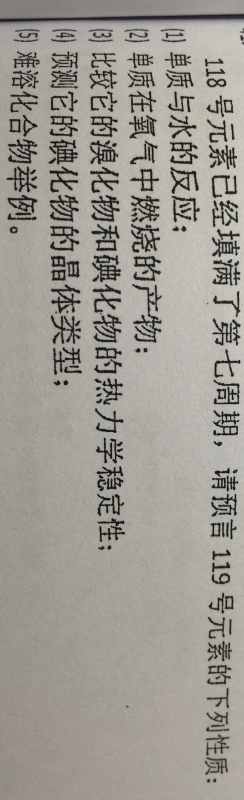 118 号元素已经填满了第七周期，请预言 119 号元素的下列性质：
(1) 单质与水的反应；
(2) 单质在氧气中燃烧的产物；
(3) 比较它的溴化物和碘化物的热力学稳定性；
(4) 预测它的碘化物的晶体类型；
(5) 难溶化合物举例。